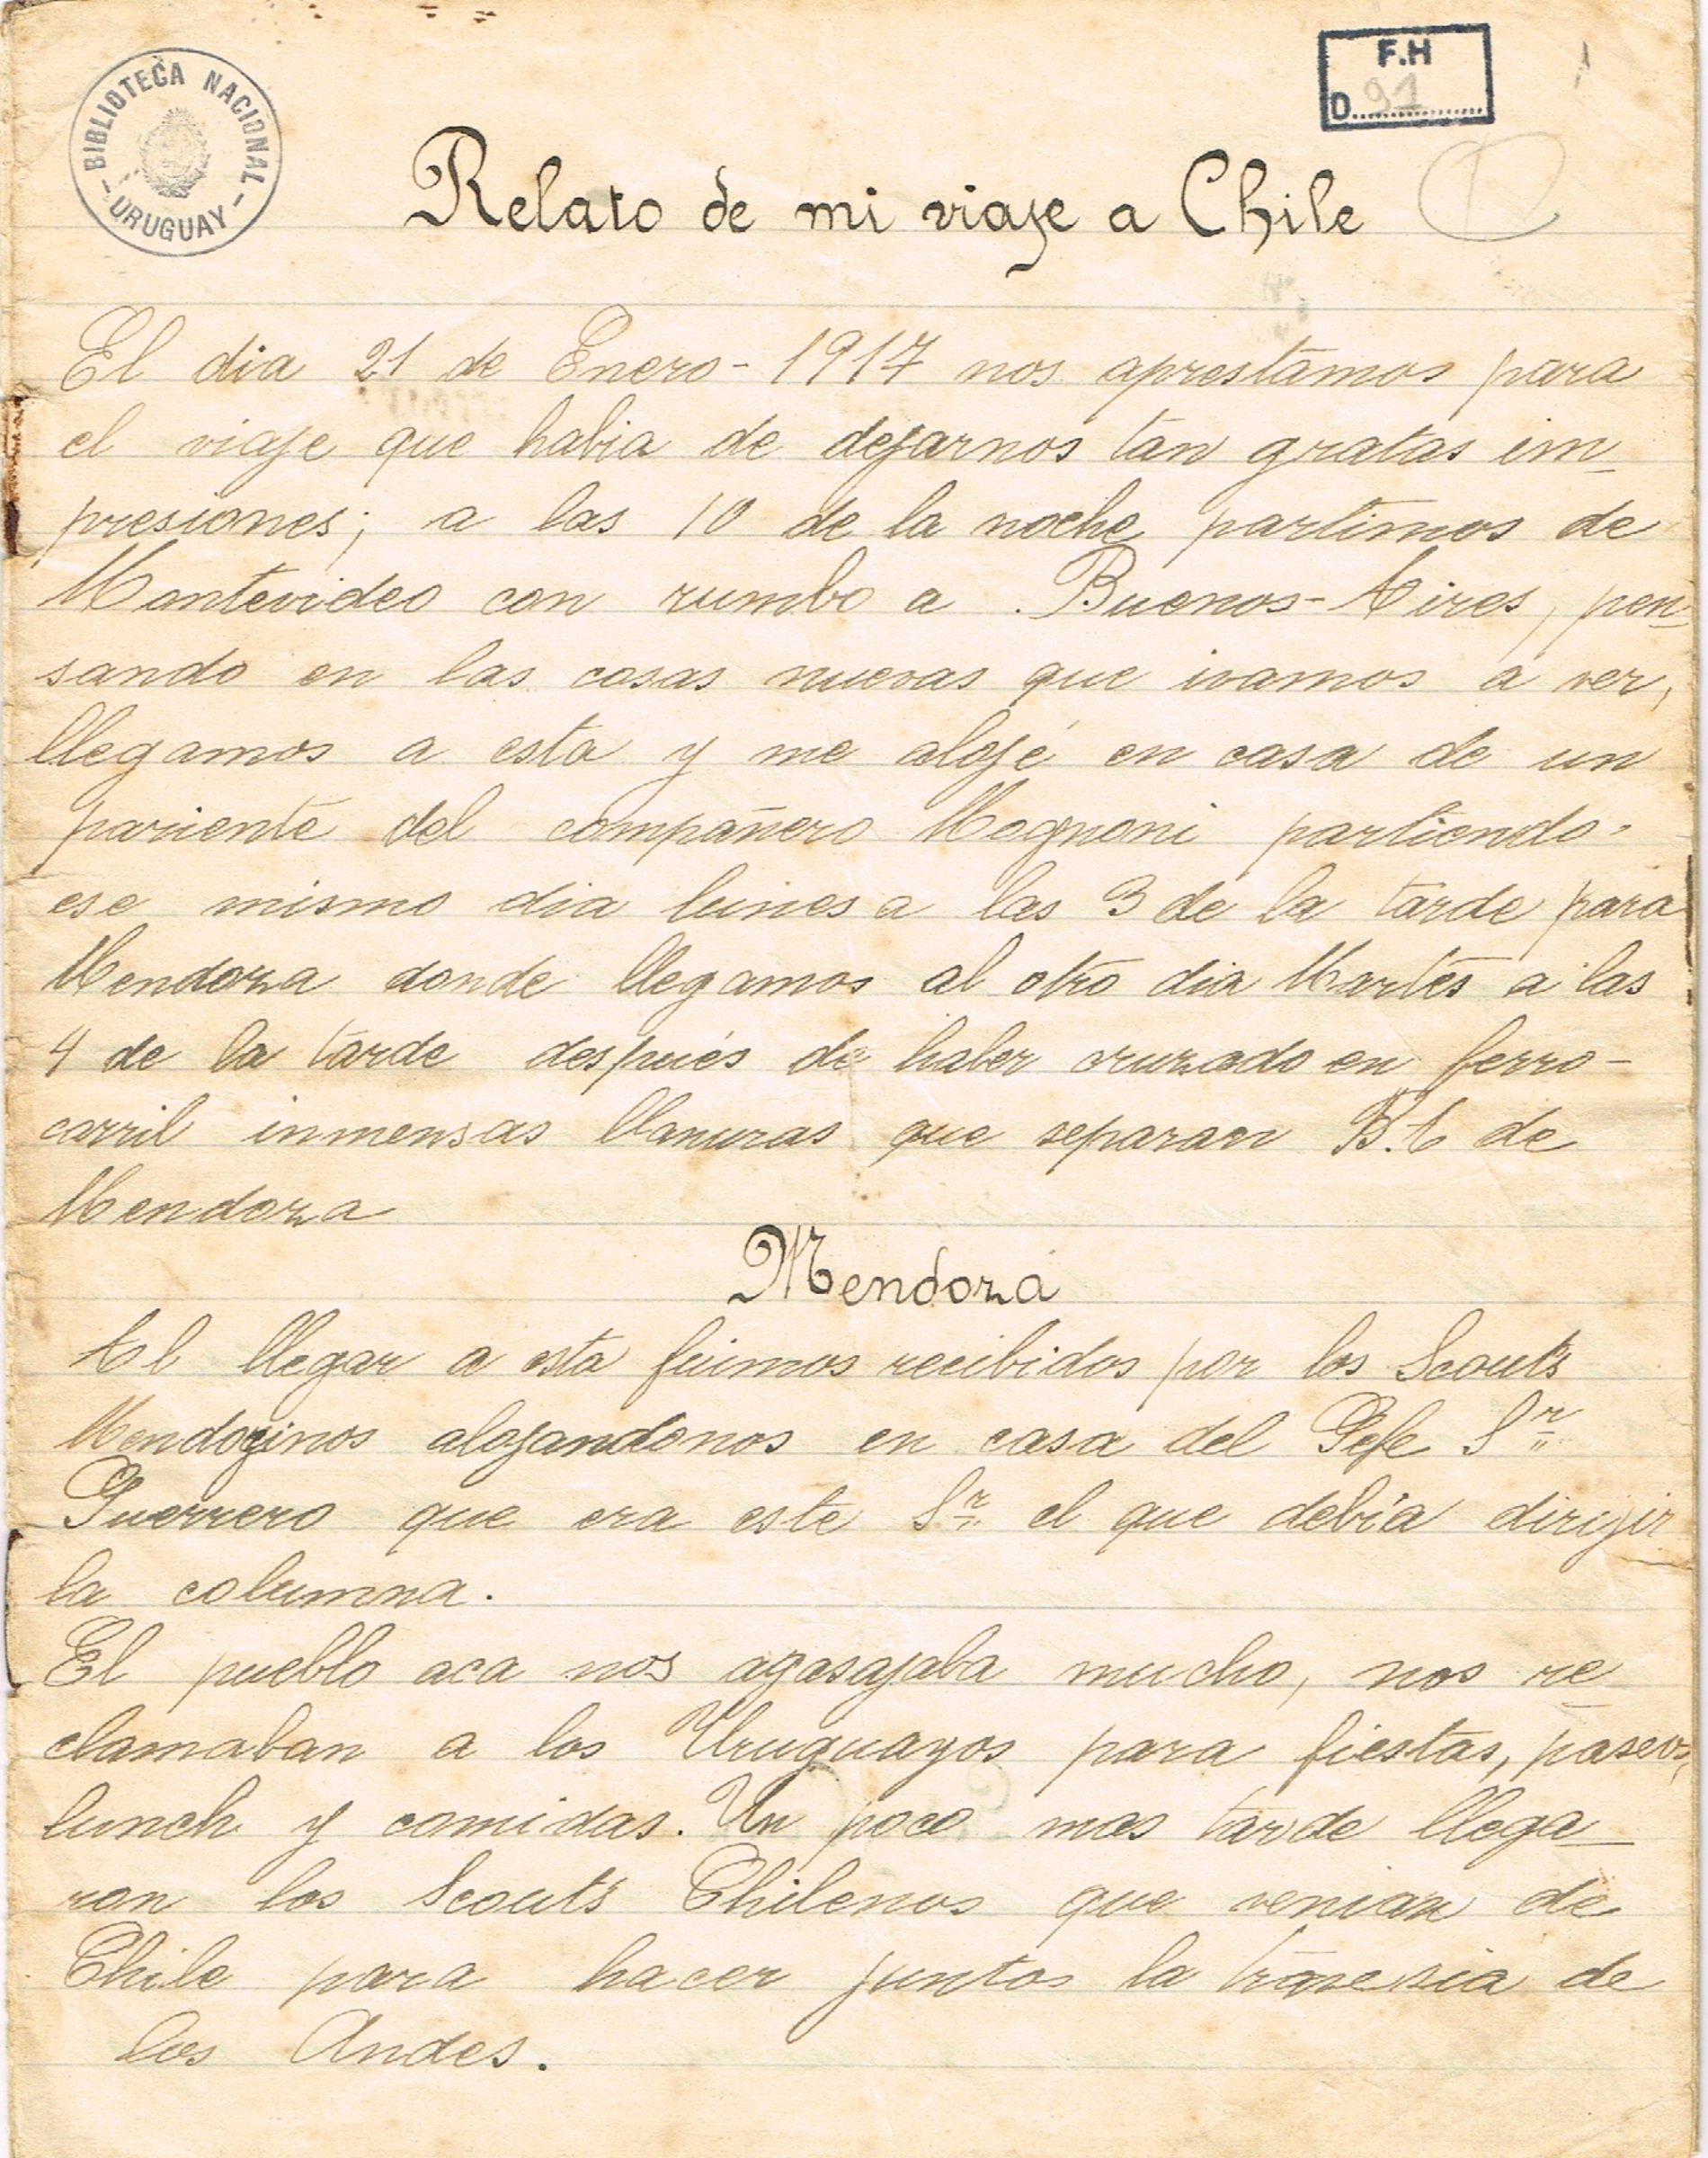 BIBLIOTECA NACIONAL
- URUGUAY -
F.H
D. 91
Relato de mi viaje a Chile
El dia 21 de Enero - 1917 nos aprestamos para
el viaje que habia de dejarnos tan gratas im-
presiones; a las 10 de la noche partimos de
Montevideo con rumbo a Buenos-Aires, pen-
sando en las cosas nuevas que ivamos a ver,
llegamos a esta y me alojé en casa de un
pariente del compañero Mognoni partiendo
ese mismo dia lunes a las 3 de la tarde para
Mendoza donde llegamos al otro dia Martes a las
4 de la tarde después de haber cruzado en ferro-
carril inmensas llanuras que separan B.A de
Mendoza
Mendoza
Al llegar a esta fuimos recibidos por los Scouts
Mendozinos alojandonos en casa del Gefe Sr.
Guerrero que era este Sr. el que debía dirijir
la columna.
El pueblo aca nos agasajaba mucho, nos re-
clamaban a los Uruguayos para fiestas, paseos,
lunch y comidas. Un poco mas tarde llega-
ron los Scouts Chilenos que venian de
Chile para hacer juntos la travesia de
los Andes.